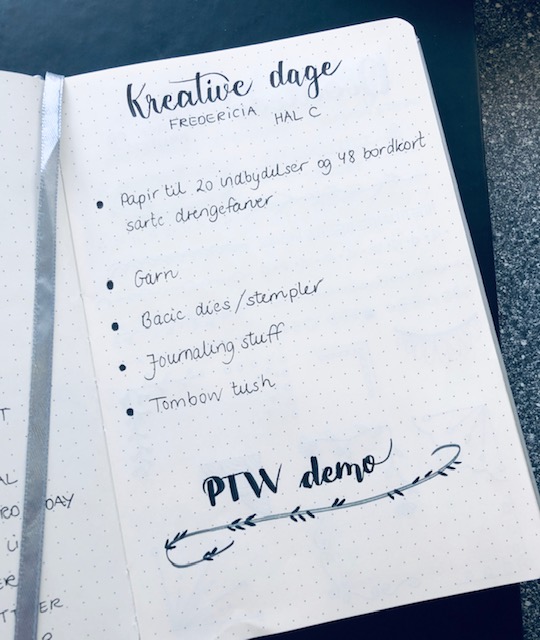 Kreative dage
FREDERICIA HAL C
Papir til 20 indbydelser og 48 bordkort
sarte drengefarver
Garn
Bacic dies/stempler
Journaling stuff
Tombow tush
PTW demo
T
AL
DAY
U
ER
ER
R